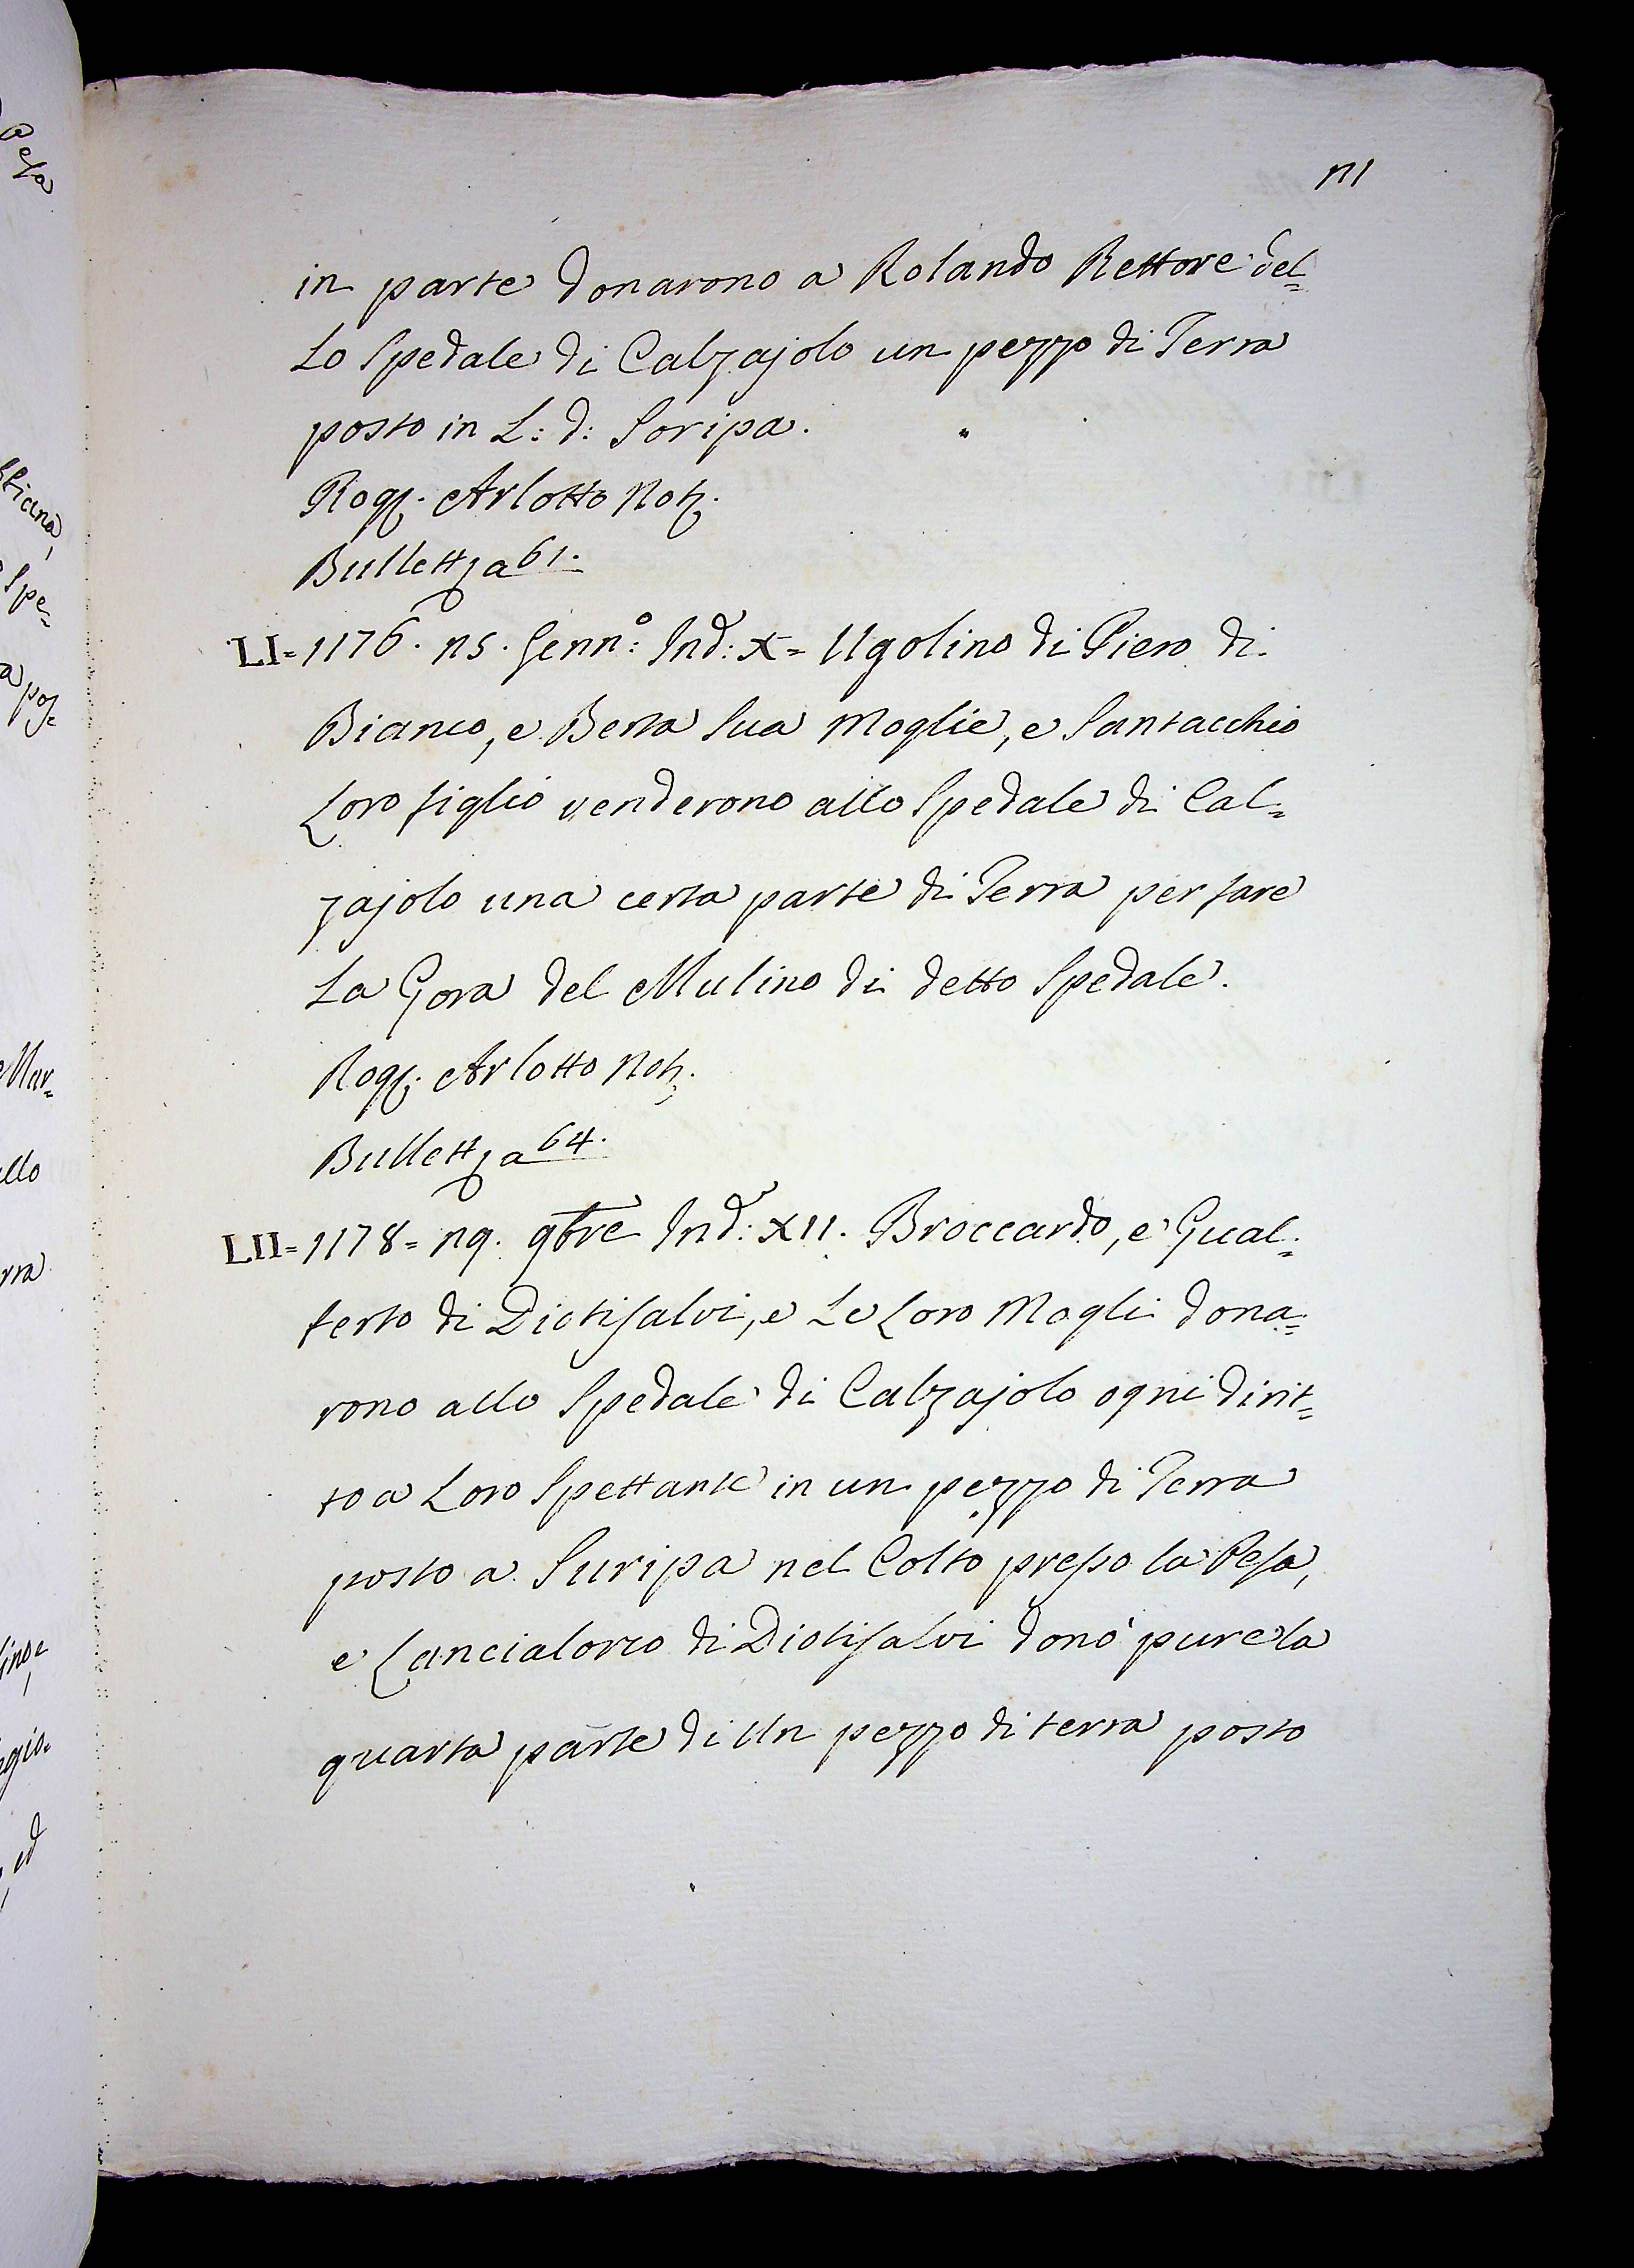 111
in parte donarono a Rolando Rettore del=
lo Spedale di Calzajolo un pezzo di Terra
posto in L: d: Soripa.
Rog. Arlotto Not.
Bullett.a 61.
LI=1176. 15. Genn.o: Ind: X= Ugolino di Piero di
Bianco, e Berta Sua Moglie, e Santacchio
Loro figlio venderono allo Spedale di Cal=
zajolo una certa parte di Terra per fare
La Gora del Mulino di detto Spedale.
Rog. Arlotto Not.
Bullett.a 64.
LII=1178= 19. 9bre Ind: XII. Broccardo, e Gual=
ferto di Diotisalvi, e Le Loro Mogli dona=
rono allo Spedale di Calzajolo ogni dirit=
to a Loro Spettante in un pezzo di Terra
posto a Suripa nel Colto presso la Pesa,
e Lancialorco di Diotisalvi donò pure la
quarta parte di Un pezzo di terra posto